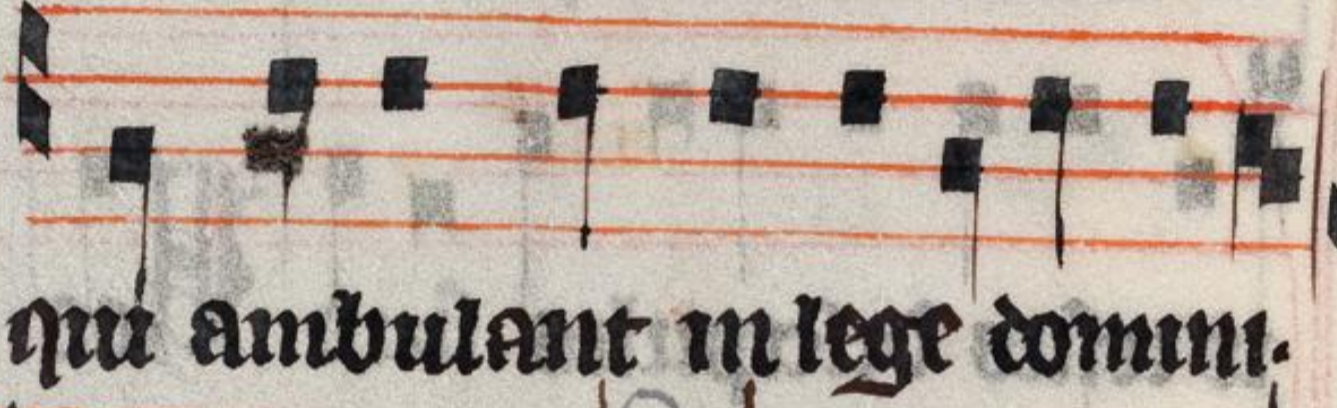 qui ambulant in lege domini.